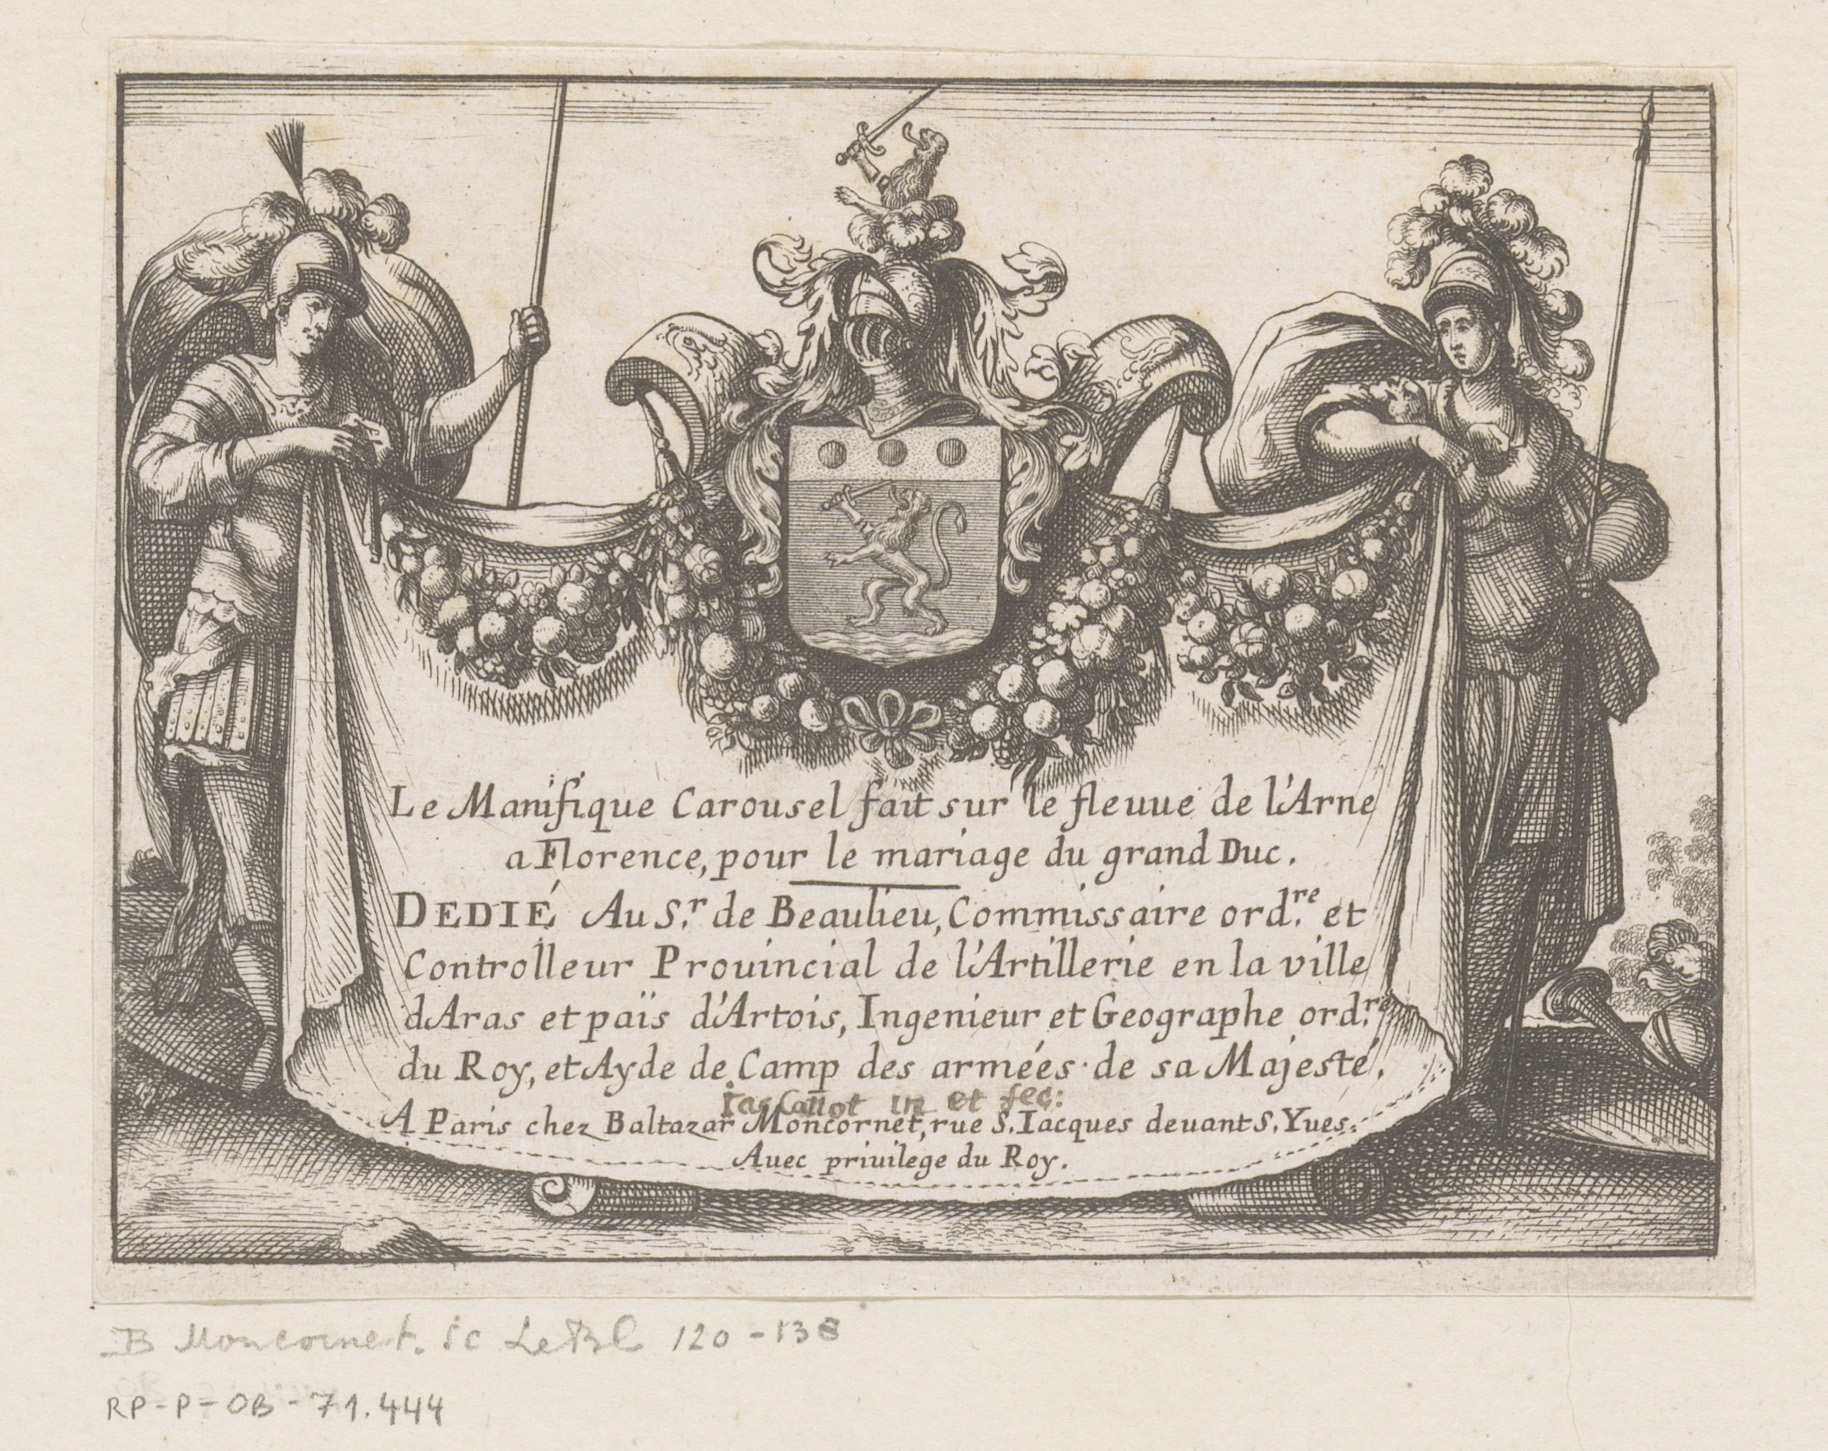 Le Manifique Carousel fait sur le fleuue de l'Arne
a Florence, pour le mariage du grand Duc.
DEDIÉ Au Sr. de Beaulieu, Commissaire ord.re et
Controlleur Prouincial de l'Artillerie en la ville
d'Aras et païs d'Artois, Ingenieur et Geographe ord.re
du Roy, et Ayde de Camp des armées de sa Majesté.
Iac Callot in et fec:
A Paris chez Baltazar Moncornet, rue S. Iacques deuant S. Yues.
Auec priuilege du Roy.
B Moncornet. sc LeBl 120-138
RP-P-OB-71.444